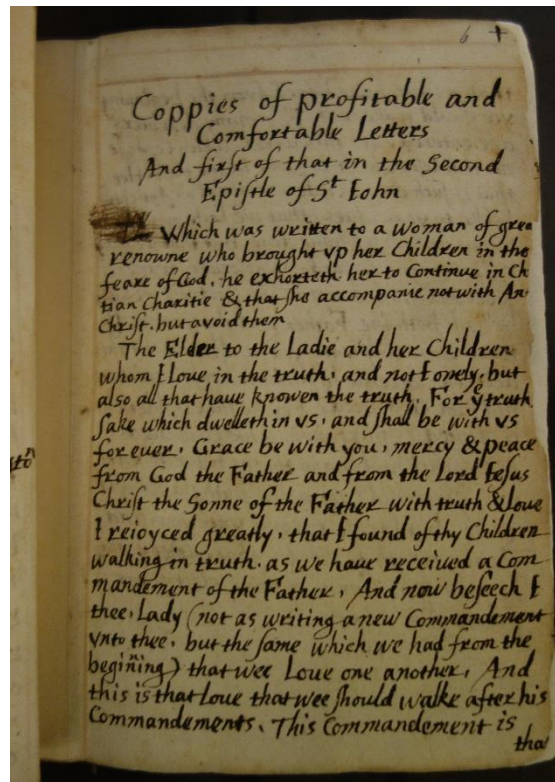 6 +
Coppies of profitable and
Comfortable Letters
And first of that in the Second
Epistle of St Iohn
Which was written to a woman of grea
renowne who brought vp her Children in the
feare of God, he exhorteth her to Continue in Ch
tian Charitie & that she accompanie not with An
Christ. but avoid them
The Elder to the Ladie and her Children
whom I Love in the truth, and not I onely, but
also all that haue knowen the truth. For ye truth
sake which dwelleth in vs, and shall be with vs
for euer, Grace be with you, mercy & peace
from God the Father and from the Lord Iesus
Christ the Sonne of the Father with truth & Loue
I reioyced greatly, that I found of thy Children
walking in truth, as we haue received a Com
mandement of the Father, And now beseech I
thee, Lady (not as writing a new Commandement
vnto thee, but the same which we had from the
begiñing) that wee Loue one another, And
this is that loue that wee should walke after his
Commandements, This Commandement is
tha